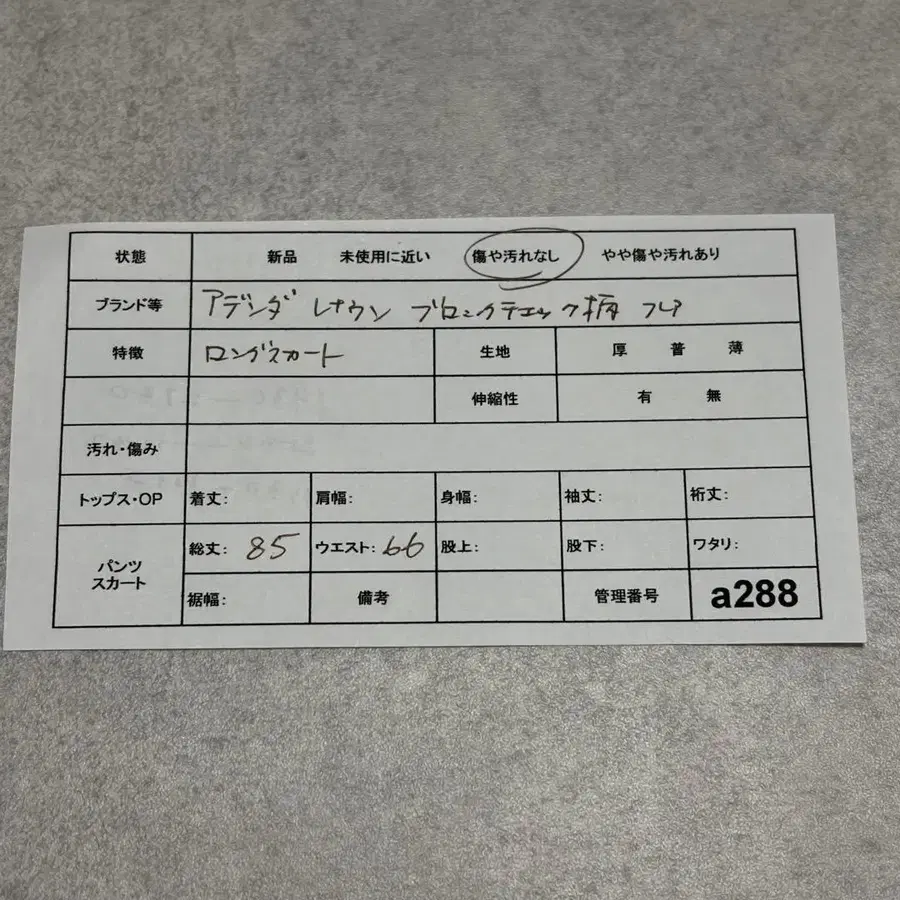 状態 新品 未使用に近い 傷や汚れなし やや傷や汚れあり
ブランド等 アデンダ レナウン ブロックチェック柄
特徴 ロングスカート 生地 厚 普 薄
伸縮性 有 無
汚れ・傷み
トップス・OP 着丈: 肩幅: 身幅: 袖丈: 裄丈:
パンツ スカート 総丈: 85 ウエスト: 66 股上: 股下: ワタリ:
裾幅: 備考 管理番号 a288